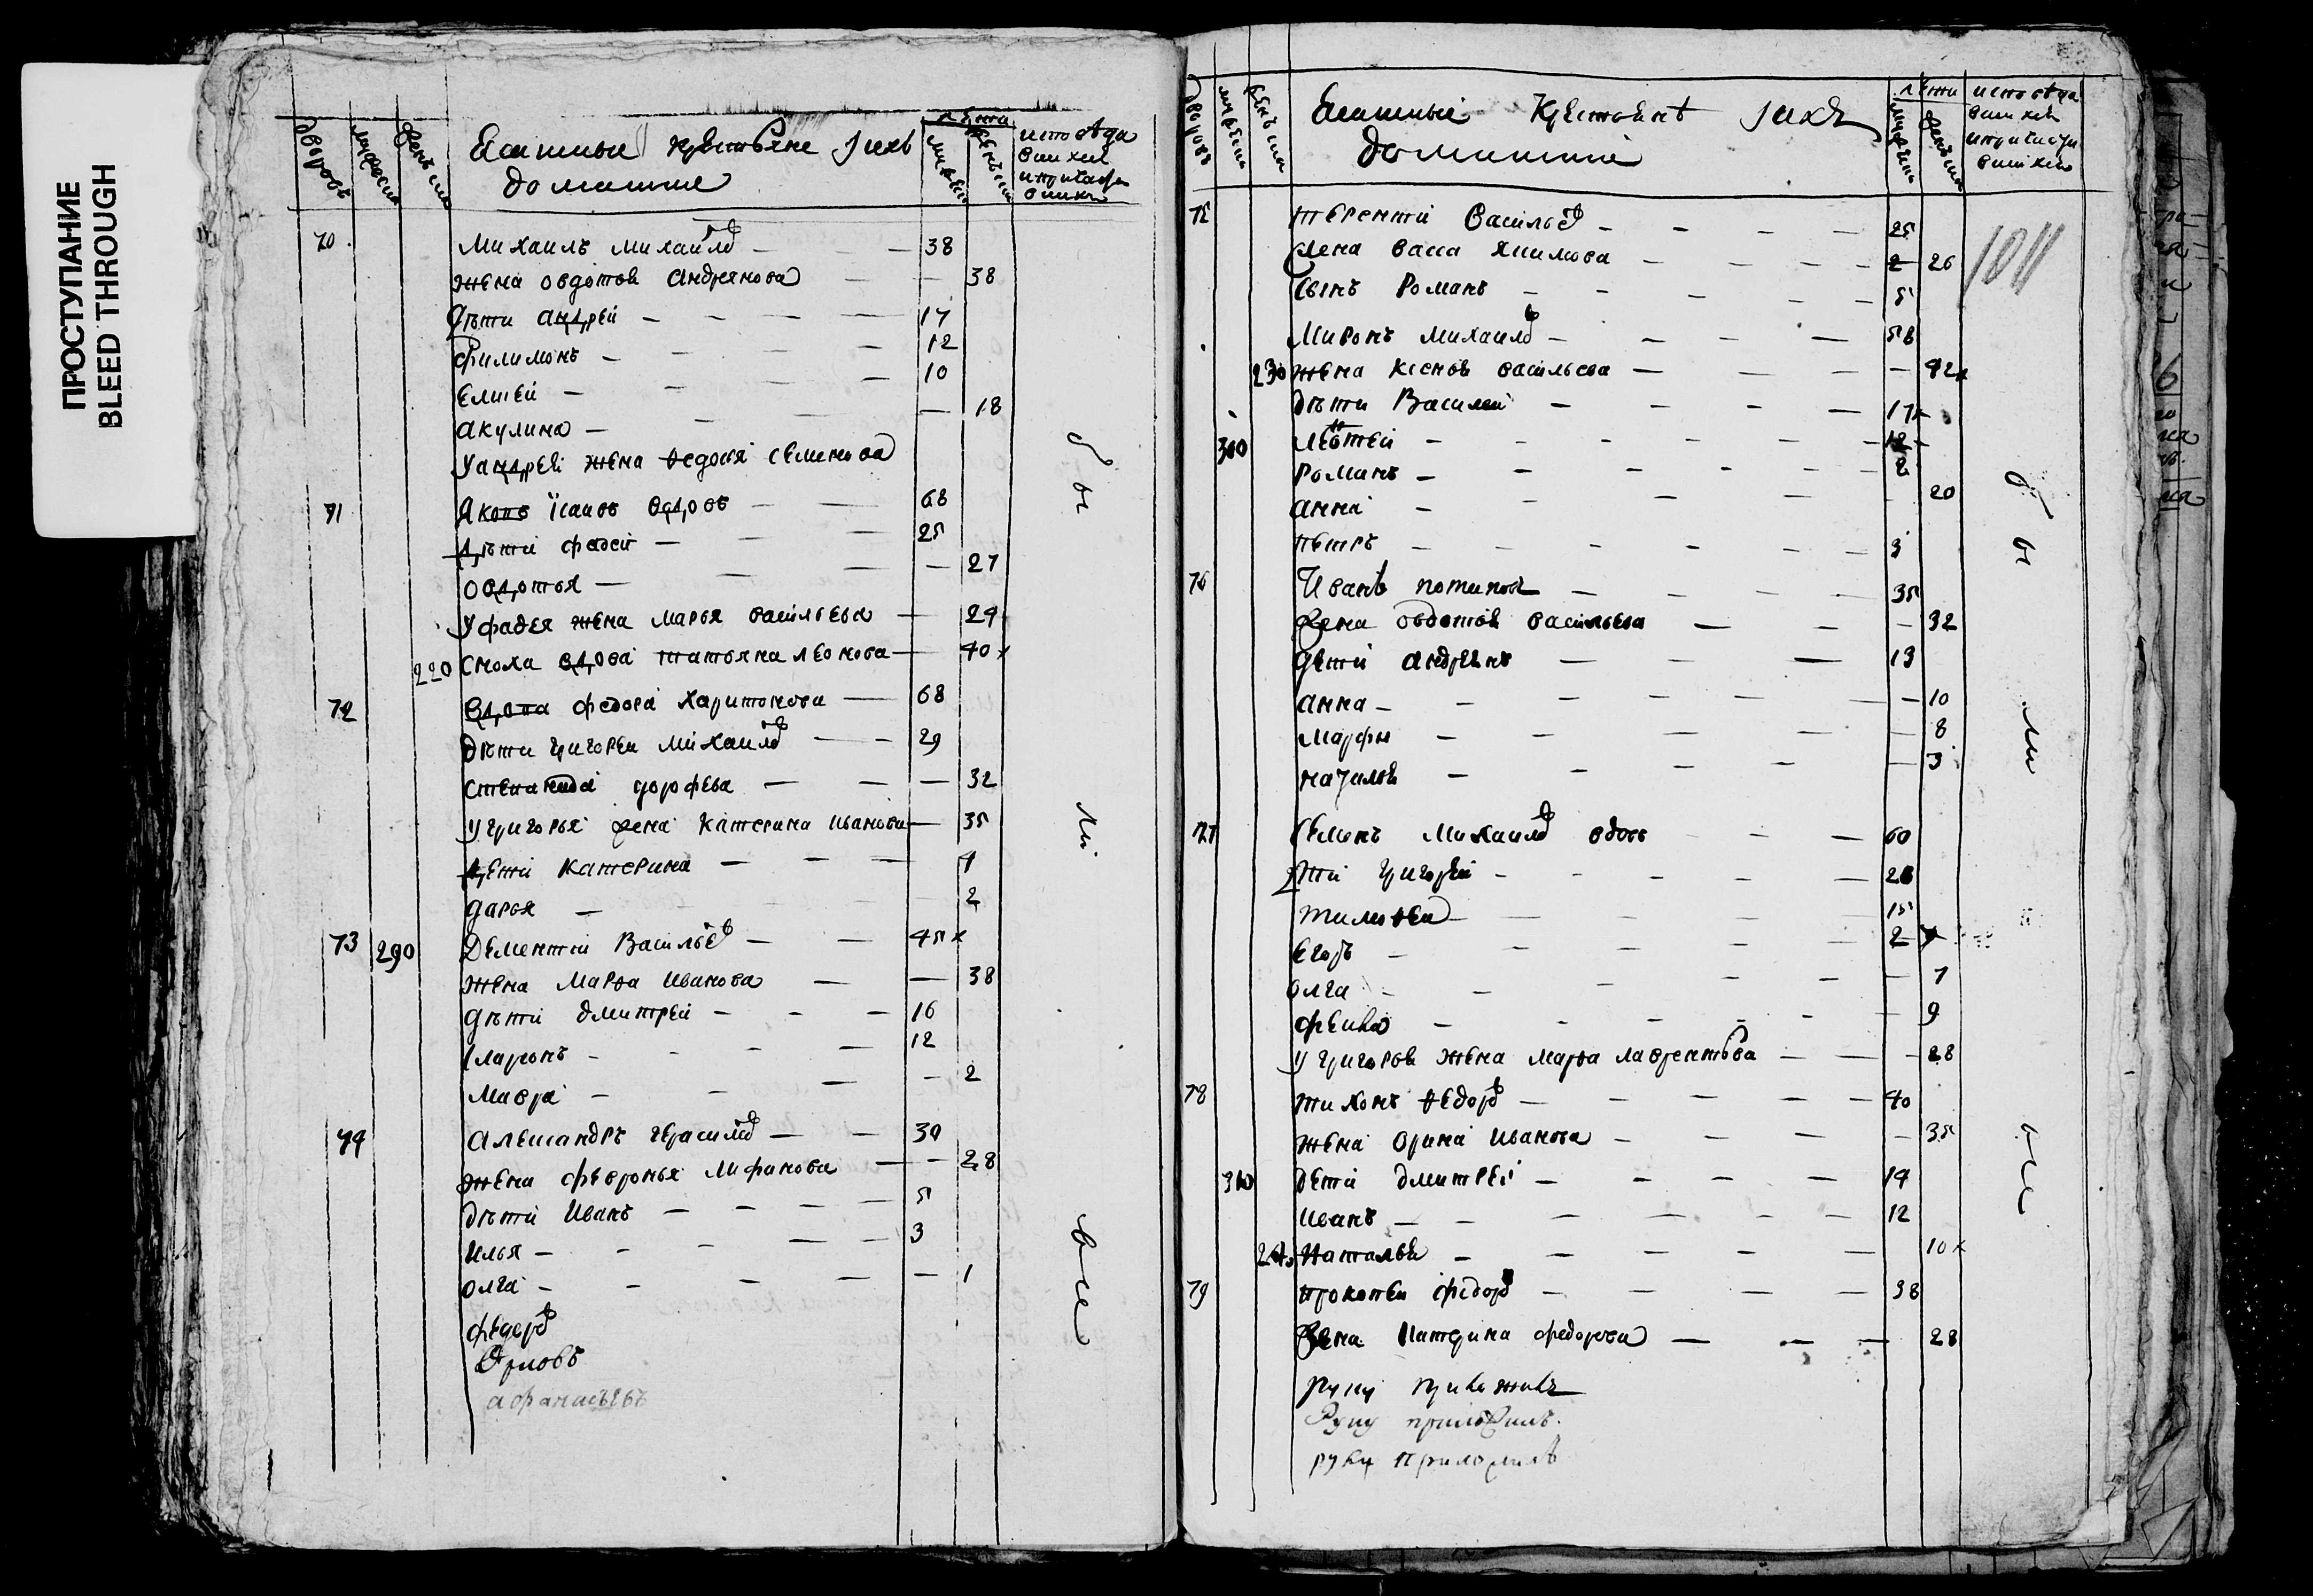 ПРОСТУПАНИЕ
BLEED THROUGH
дворовъ
мужеска
женъска
Ясашныя крестьяне и ихъ
домашние
лѣта
исповеда
вшихся
и причаща
вшихся
70
Михаилъ Михайловъ — — 38
жена Овдотья Андреянова — — 38
дѣти Андрей — — — 17
Филимонъ — — — 12
Елисей — — — 10
Акулина — — — 18
у Андрея жена Ѳедосья Семенова
71
Яковъ Исаевъ вдовъ — — 68
дѣти Фадей — — — 25
Овдотья — — — 27
у Фадея жена Марья Васильева — 24
220 сноха вдова Татьяна Леонова — 40 х
72
вдова Федора Харитонова — 68
дѣти Григорей Михайловъ — — 29
Степанида Дорофеева — — — 32
у Григорья жена Катерина Иванова — 35
дети Катерина — — — 4
Дарья — 2
73 290 Дементий Васильевъ — — 45 х
жена Марѳа Иванова — — 38
дѣти Дмитрей — — — 16
Иларонъ — — — 12
Мавра — — — 2
74
Александръ Герасимовъ — — 30
жена Февронья Мифанова — — 28
дѣти Иванъ — — — — 5
Илья — — — — 3
Олга — — — — 1
Федоръ
Орловъ
афанасьевъ
бы
ли
все
Ясашные Крестьянѣ и ихъ
домашние
лѣта
исповеда
вшихся
и причасти
вшихся
1011
75
Терентий Васильевъ — — — — 25
жена Васса Якимова — — — 26
сынъ Романъ — — — — 5
Миронъ Михайловъ — — — — 58
230 жена Ксенья Васильева — — 42 х
дѣти Василей — — — — 17 х
300
Романъ — — — — 2
Анна — — — — 20
Петръ — — — — 3
76
Иванъ Потаповъ — — — — 35
жена Овдотья Васильева — — — 32
дети Андреянъ — — — 13
Анна — — — — 10
Марфа — — — — 8
Наталья — — — — 3
77
Семенъ Михайловъ вдовъ — — 60
дѣти Григорей — — — — 28
Тимоѳей — — — 15
Егоръ — — — — 2
Олга — — — — 7
Фекла — — — — 9
у Григорья жена Марѳа Лаврентьева — — 28
78
Тихонъ Ѳедоровъ — — — — 40
жена Орина Иванова — — — 35
310 дети Дмитрей — — — — 14
Иванъ — — — — 12
240 Наталья — — — — 10 х
79
Прокопей Федоровъ — — — 38
жена Катерина Федорова — — — 28
руку приложилъ
Руку приложилъ.
руку приложилъ
бы
ли
все